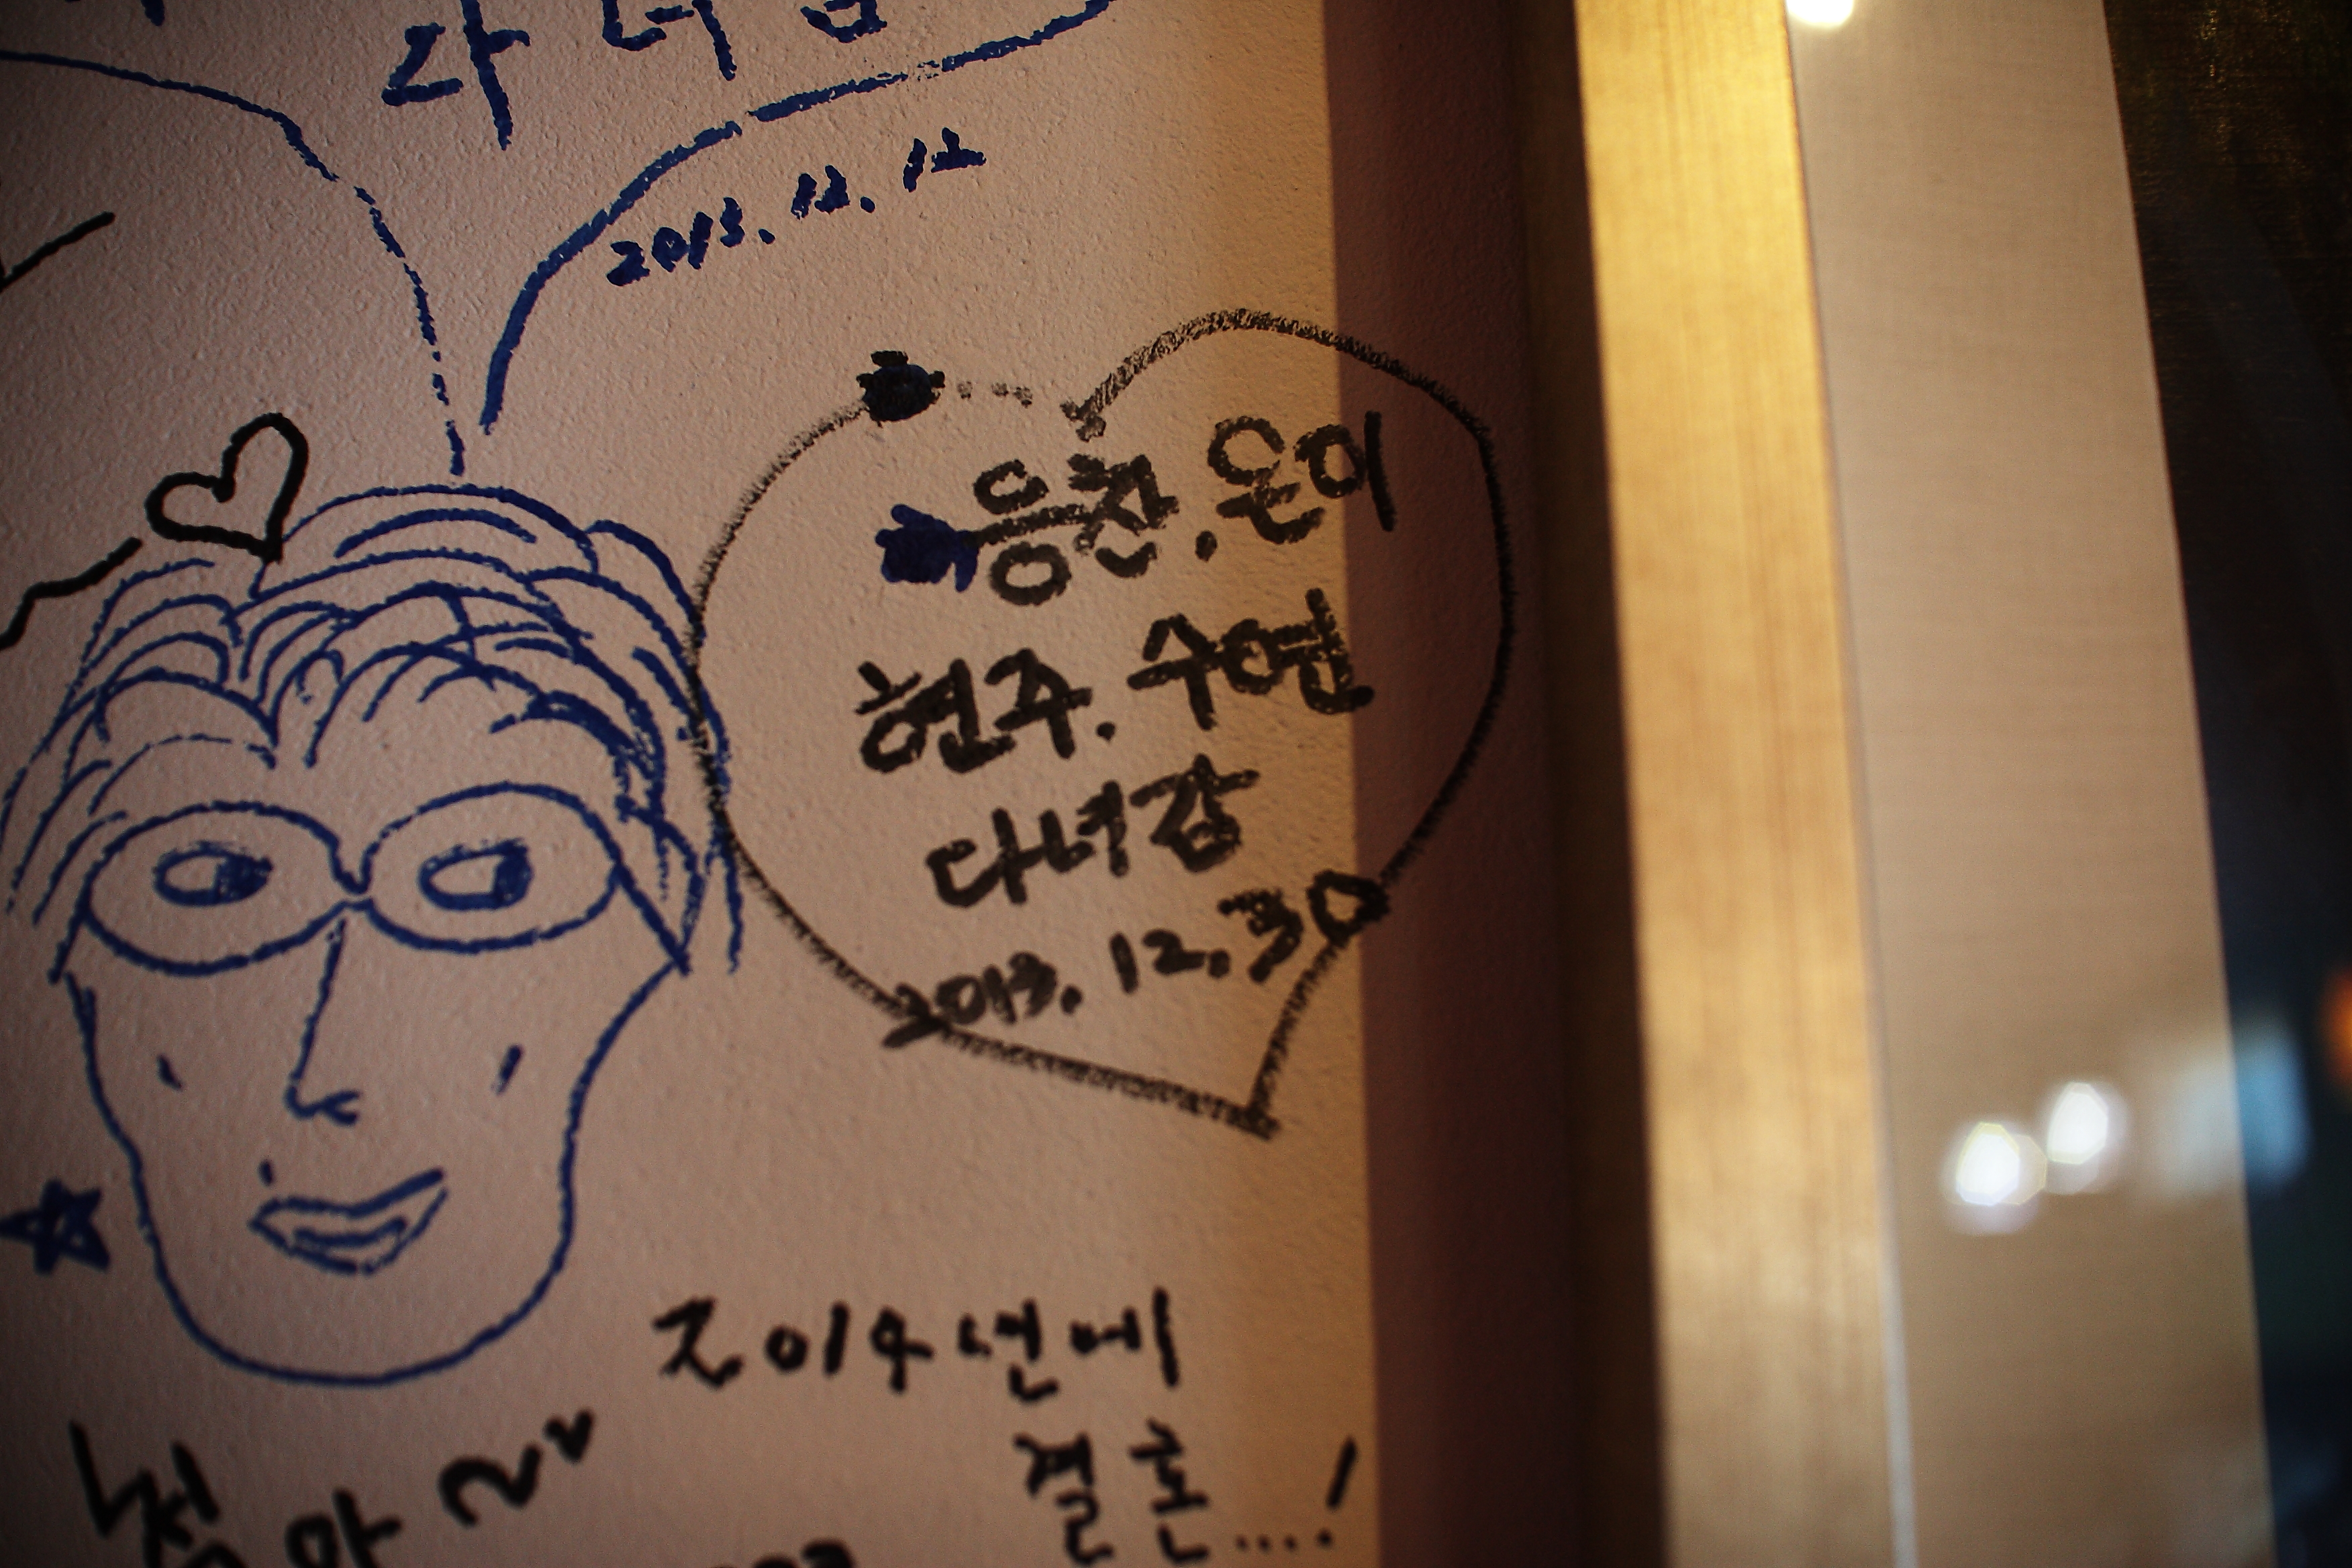 2013. 12. 12
응찬. 은이
현주. 수연
다녀감
2013. 12. 30
2014년에
결혼....!